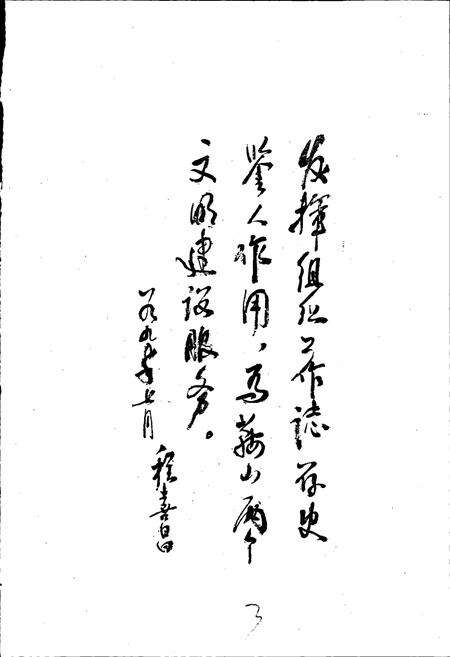 发挥组织工作誌存史
鉴人作用，为萧山两个
文明建设服务。
一九九〇年七月
程春昌
3